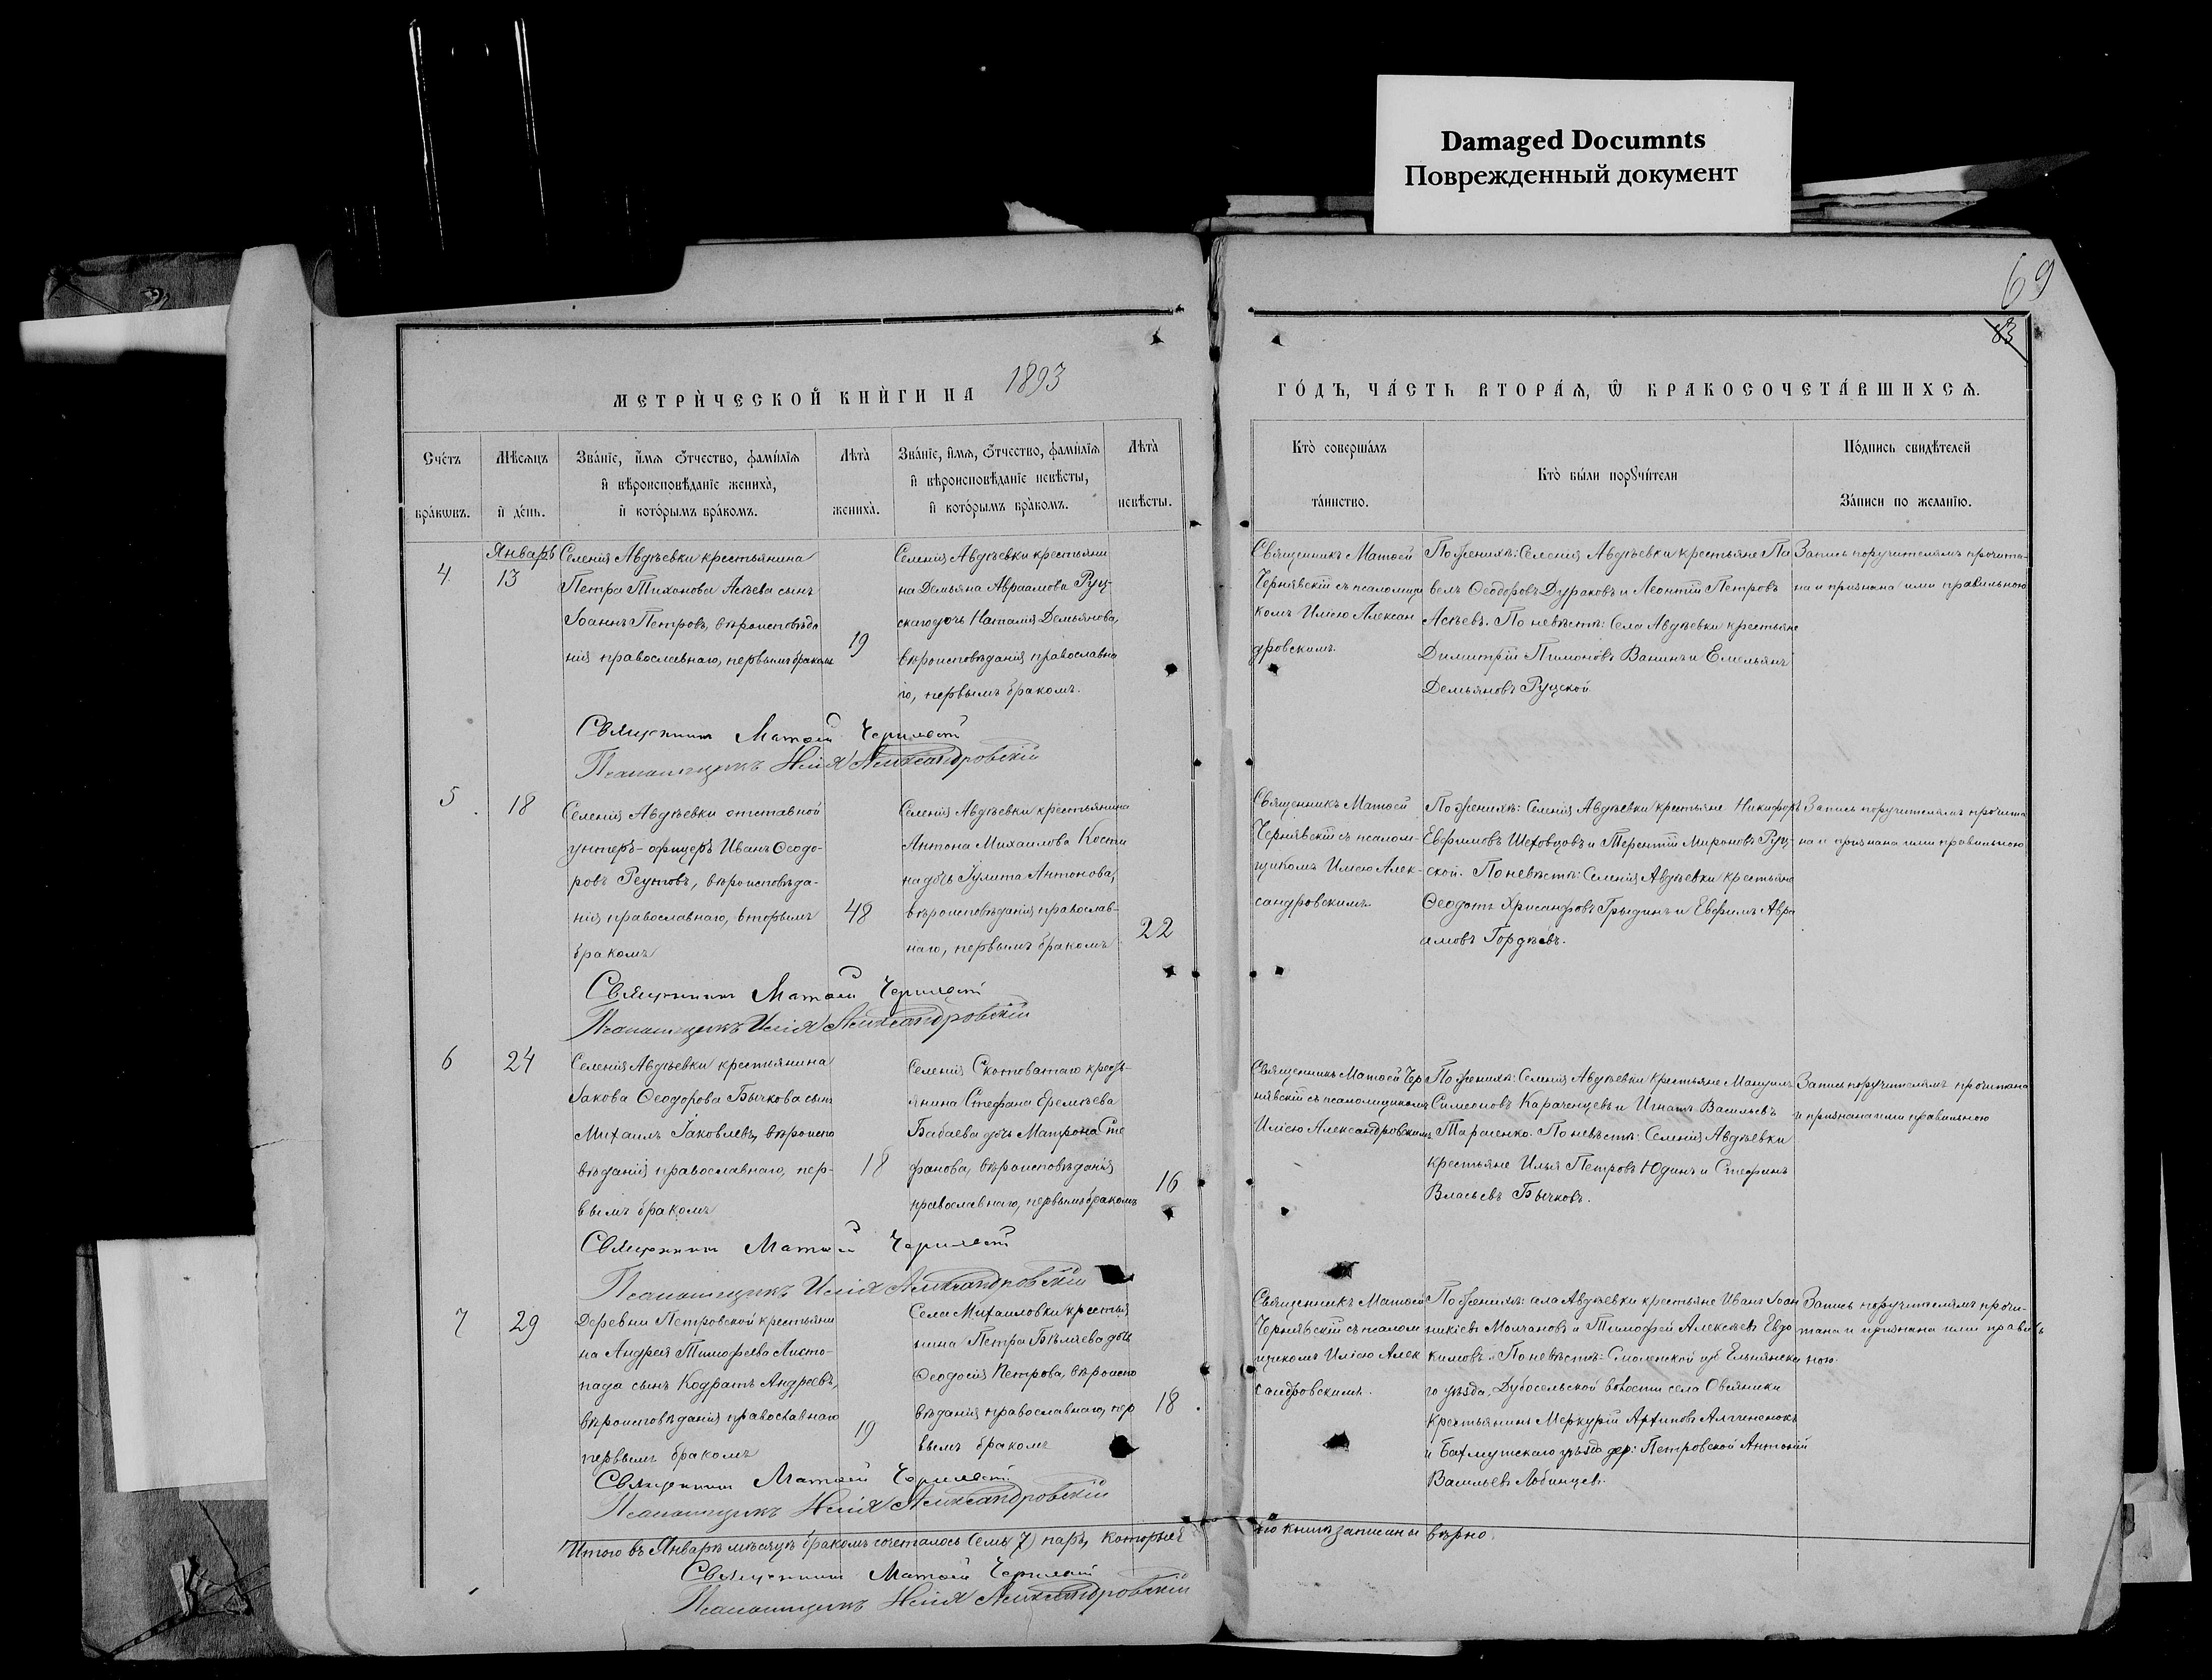 Damaged Documnts
Поврежденный документ
69
83
МЕТРИЧЕСКОЙ КНИГИ НА 1893
ГОДЪ, ЧАСТЬ ВТОРАЯ, Ѿ БРАКОСОЧЕТАВШИХСЯ.
Счетъ бракѡвъ.
Мѣсяцъ и день.
Званіе, имя, ѻтчество, фамилія
и вѣроисповѣданіе жениха,
и которымъ бракомъ.
Лѣта жениха.
Званіе, имя, ѻтчество, фамилія
и вѣроисповѣданіе невѣсты,
и которымъ бракомъ.
Лѣта невѣсты.
Кто совершалъ
таинство.
Кто были порꙋчители
Подпись свидѣтелей
Записи по желанію.
4.
Январь
13
Селенія Авдѣевки крестьянина
Петра Тихонова Асѣева сынъ
Іоаннъ Петровъ, вѣроисповѣда
нія православнаго, первымъ бракомъ
19
Селенія Авдѣевки крестьяни
на Демьяна Авраамова Руц-
скаго дочь Наталія Демьянова,
вѣроисповѣданія православна
го, первымъ бракомъ.
Священникъ Матѳей
Чернявскій съ псаломщи
комъ Иліею Алексан
дровскимъ.
По женихѣ: Селенія Авдѣевки крестьяне Па
велъ Ѳеодоровъ Дураковъ и Леонтій Петровъ
Асѣевъ. По невѣстѣ: Села Авдѣевки крестьяне
Димитрій Пимоновъ Ванинъ и Емельянъ
Демьяновъ Руцской
Запись поручителямъ прочита-
на и признана ими правильною
Священникъ Матѳей Чернявскій
Псаломщикъ Илія Александровскій
5.
18
Селенія Авдѣевки отставной
унтеръ-офицеръ Иванъ Ѳеодо-
ровъ Реутовъ, вѣроисповѣда-
нія православнаго, вторымъ
бракомъ
48
Селенія Авдѣевки крестьянина
Антона Михаилова Кости
на дочь Іулита Антонова,
вѣроисповѣданія православ-
наго, первымъ бракомъ
22
Священникъ Матѳей
Чернявскій съ псалом-
щикомъ Иліею Алек-
сандровскимъ
По женихѣ: Селенія Авдѣевки крестьяне Никифоръ
Евфимовъ Шеховцовъ и Терентій Мироновъ Руц-
ской. По невѣстѣ: Селенія Авдѣевки крестьяне
Ѳеодотъ Хрисанфовъ Грыдинъ и Евфимъ Авра
амовъ Гордѣевъ.
Запись поручителямъ прочита
на и признана ими правильною
Священникъ Матѳей Чернявскій
Псаломщикъ Илія Александровскій
6
24
Селенія Авдѣевки крестьянина
Іакова Ѳеодорова Бычкова сынъ
Михаилъ Іаковлевъ, вѣроиспо
вѣданія православнаго, пер-
вымъ бракомъ
18
Селенія Скотоватаго кресть-
янина Стефана Еремѣева
Бабаева дочь Матрона Сте
фанова, вѣроисповѣданія
православнаго, первымъ бракомъ
16
Священникъ Матѳей Чер
нявскій съ псаломщикомъ
Иліею Александровскимъ
По женихѣ: Селенія Авдѣевки крестьяне Мануилъ
Симеоновъ Караченцевъ и Игнатъ Васильевъ
Тарасенко. По невѣстѣ: Селенія Авдѣевки
крестьяне Илья Петровъ Юдинъ и Стефанъ
Власьевъ Бычковъ.
Запись поручителямъ прочитана
и признана ими правильною
Священникъ Матѳей Чернявскій
Псаломщикъ Илія Александровскій
7
29
Деревни Петровской крестьяни
на Андрея Тимофеева Листо-
пада сынъ Кодратъ Андреевъ,
вѣроисповѣданія православнаго
первымъ бракомъ
19
Села Михаиловки крестья
нина Петра Бѣляева дочь
Ѳеодосія Петрова, вѣроиспо
вѣданія православнаго, пер
вымъ бракомъ
18.
Священникъ Матѳей
Чернявскій съ псалом
щикомъ Иліею Алек
сандровскимъ.
По женихѣ: села Авдѣевки крестьяне Иванъ Іоан
никіевъ Молчановъ и Тимофей Алексѣевъ Евдо
кимовъ. По невѣстѣ: Смоленской губ Ельнянска
го уѣзда, Дубосельской волости села Овсяники
крестьянинъ Меркурій Архиповъ
и Бахмутскаго уѣзда дер: Петровской Антоній
Васильевъ Лобинцевъ.
Запись поручителямъ прочи-
тана и признана ими правиль
ною.
Священникъ Матѳей Чернявскій
Псаломщикъ Илія Александровскій
Итого въ Январѣ мѣсяцѣ бракомъ сочеталось семь (7) паръ, которые
книгѣ записаны вѣрно.
Священникъ Матѳей Чернявскій
Псаломщикъ Илія Александровскій